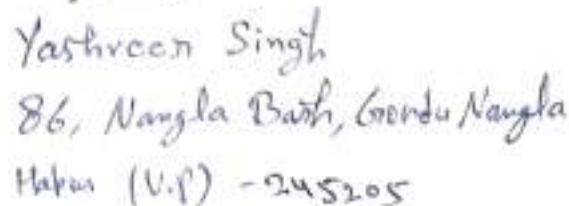 Yashveer Singh
86, Nangla Barh, Gondu Nangla
Hapur (U.P) - 245205